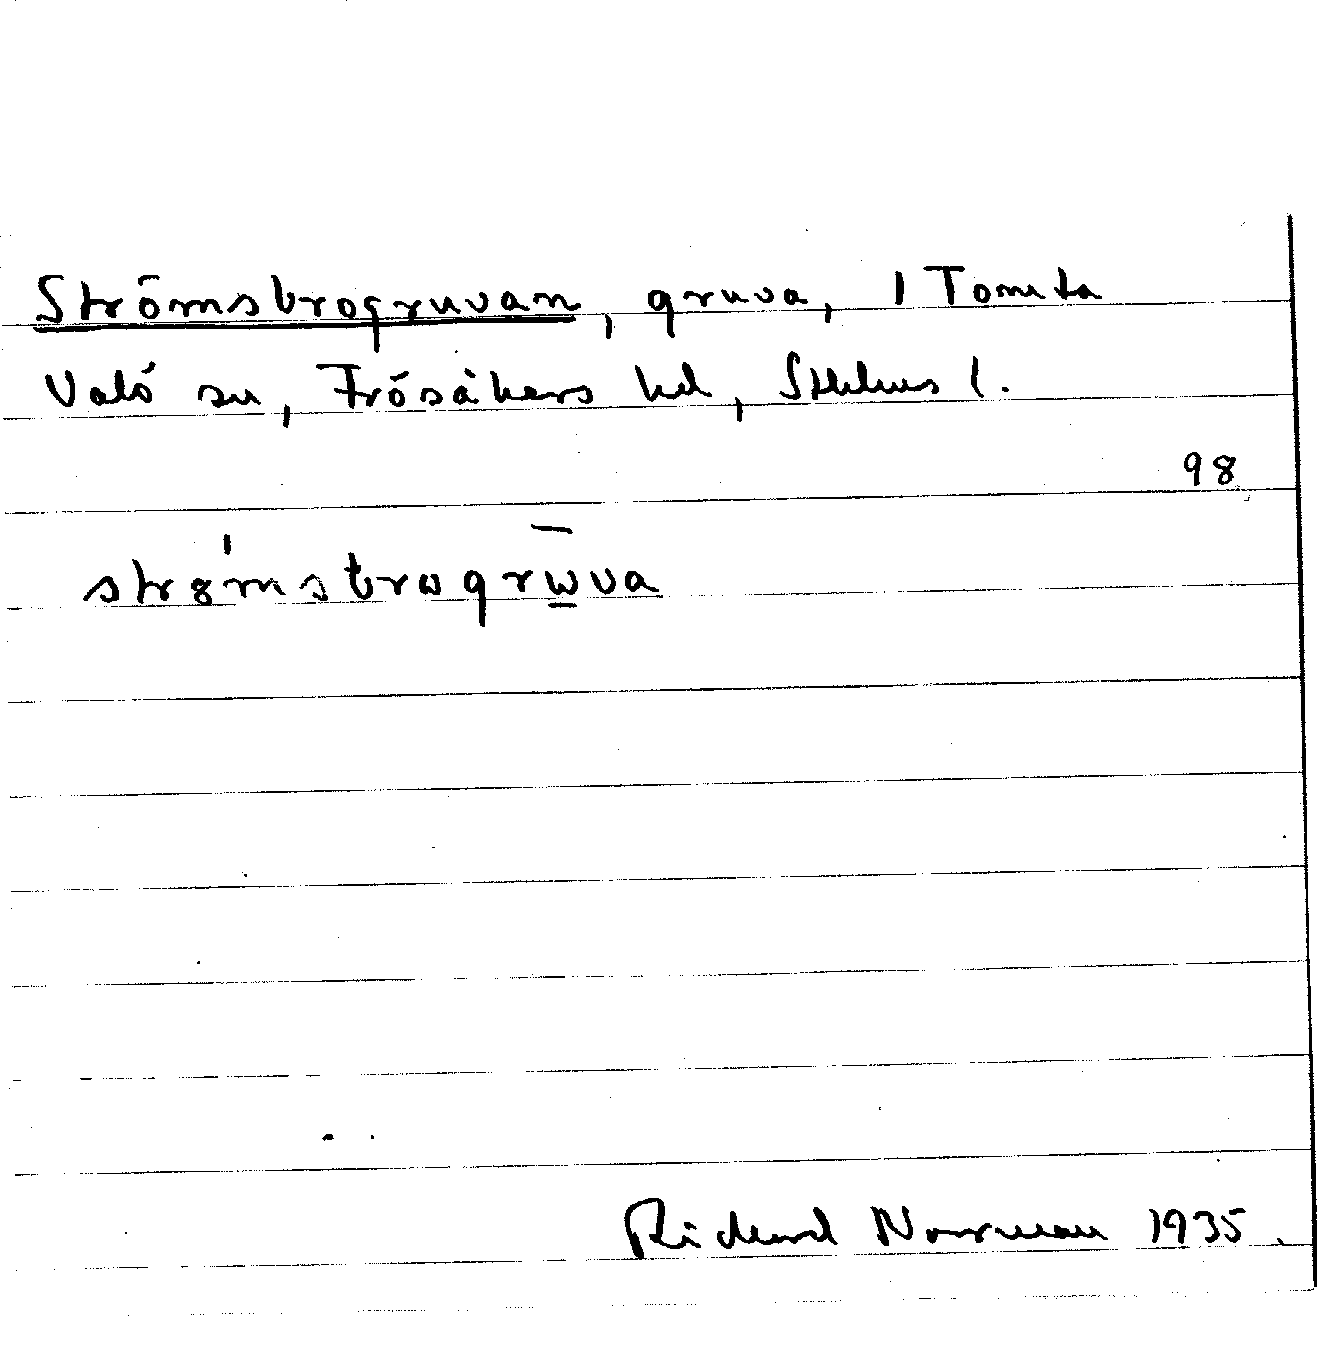 Strömsbrogruvan, gruva, i Tomta
Valö sn, Frösåkers hd, Sthlms l.
98
strømsbrωgrω̲̄va
Rickard Norrman 1935.